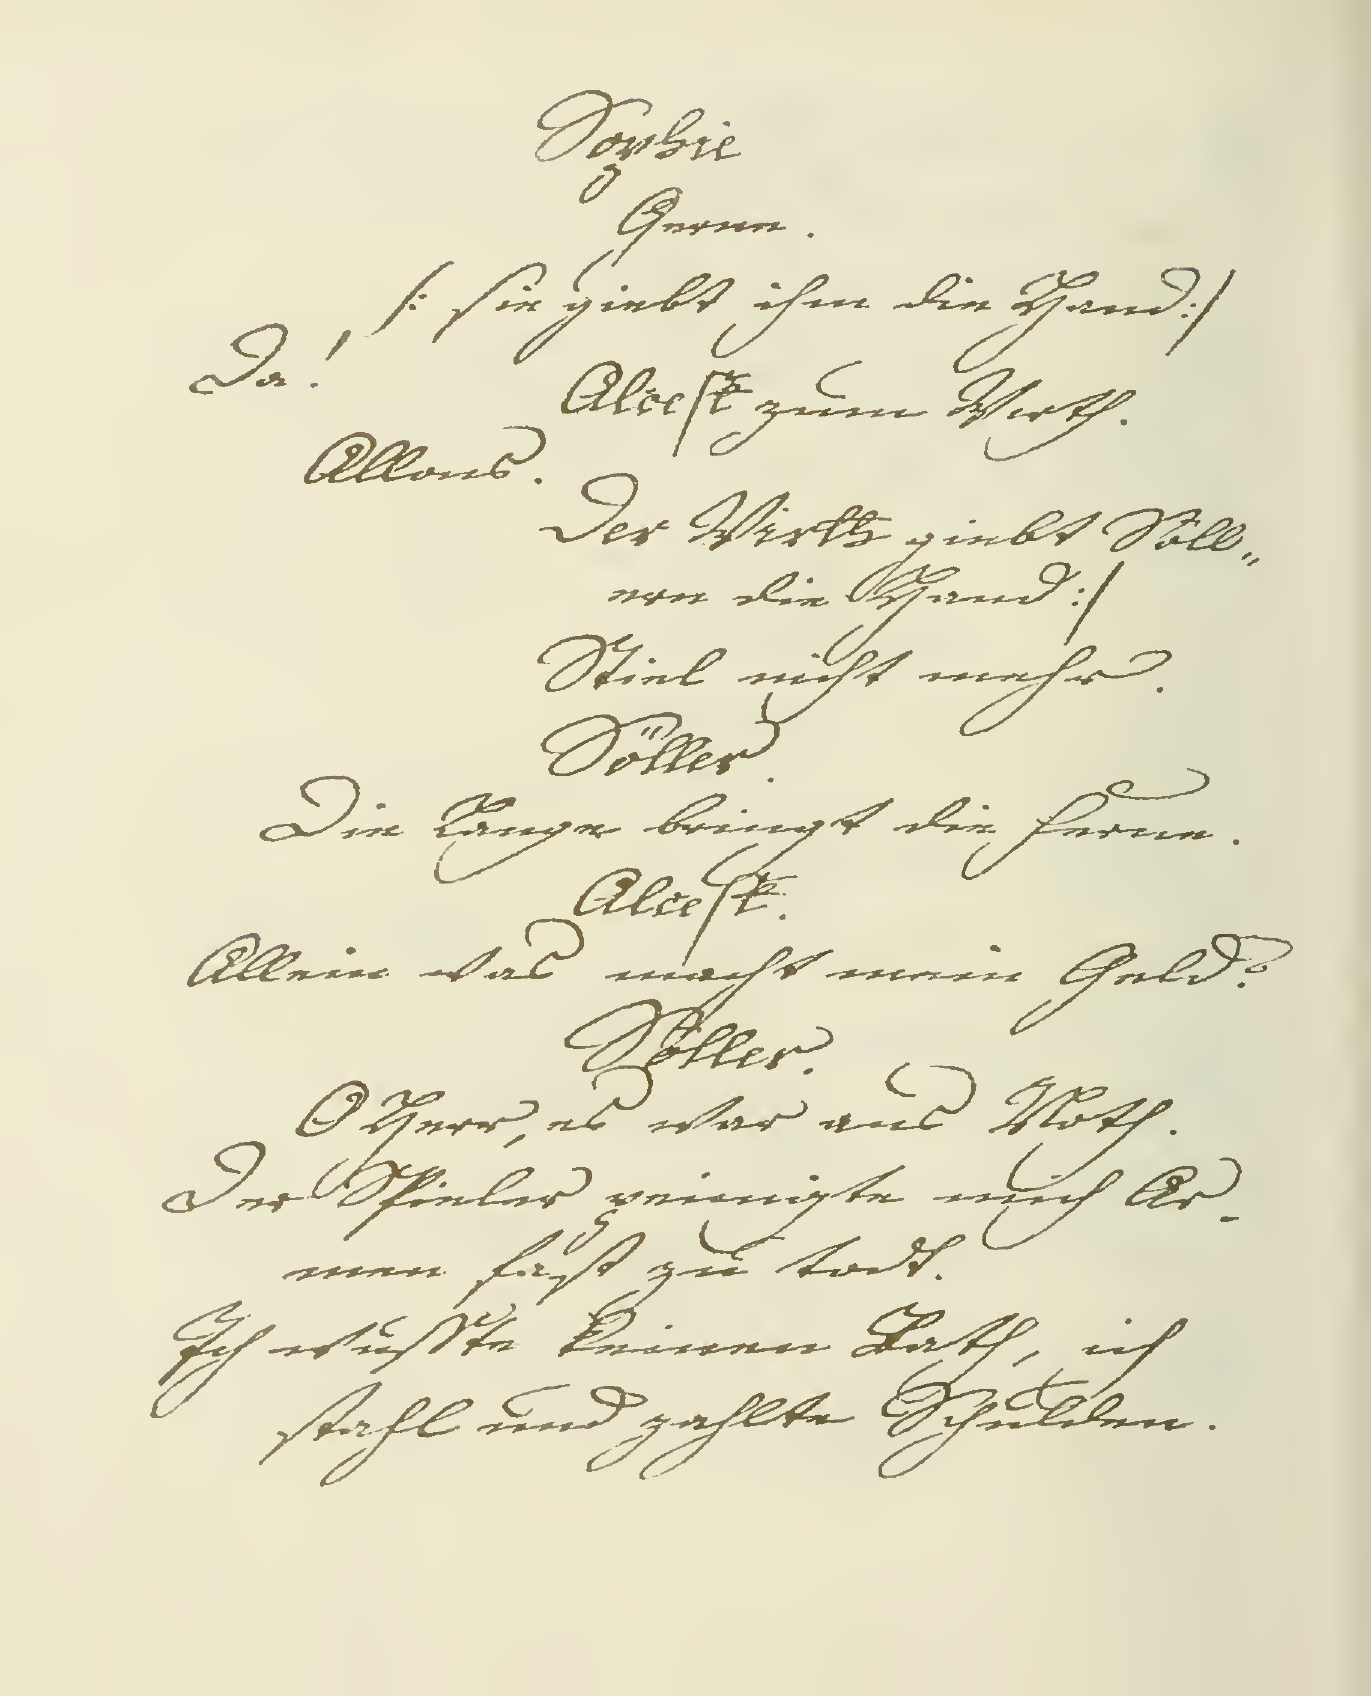 Sophie
Gerne.
/: sie giebt ihm die Hand:/
Da!
Alcest zum Wirth.
Allons.
Der Wirth giebt Söll„
ern die Hand:/
Stiel nicht mehr.
Söller.
Die Länge bringt die Ferne.
Alcest.
Allein was macht mein Geld?
Söller.
O Herr, es war aus Noth.
Der Spieler peinigte mich Ar-
men fast zu todt.
Ich wußte keinen Rath, ich
stahl und zahlte Schulden.